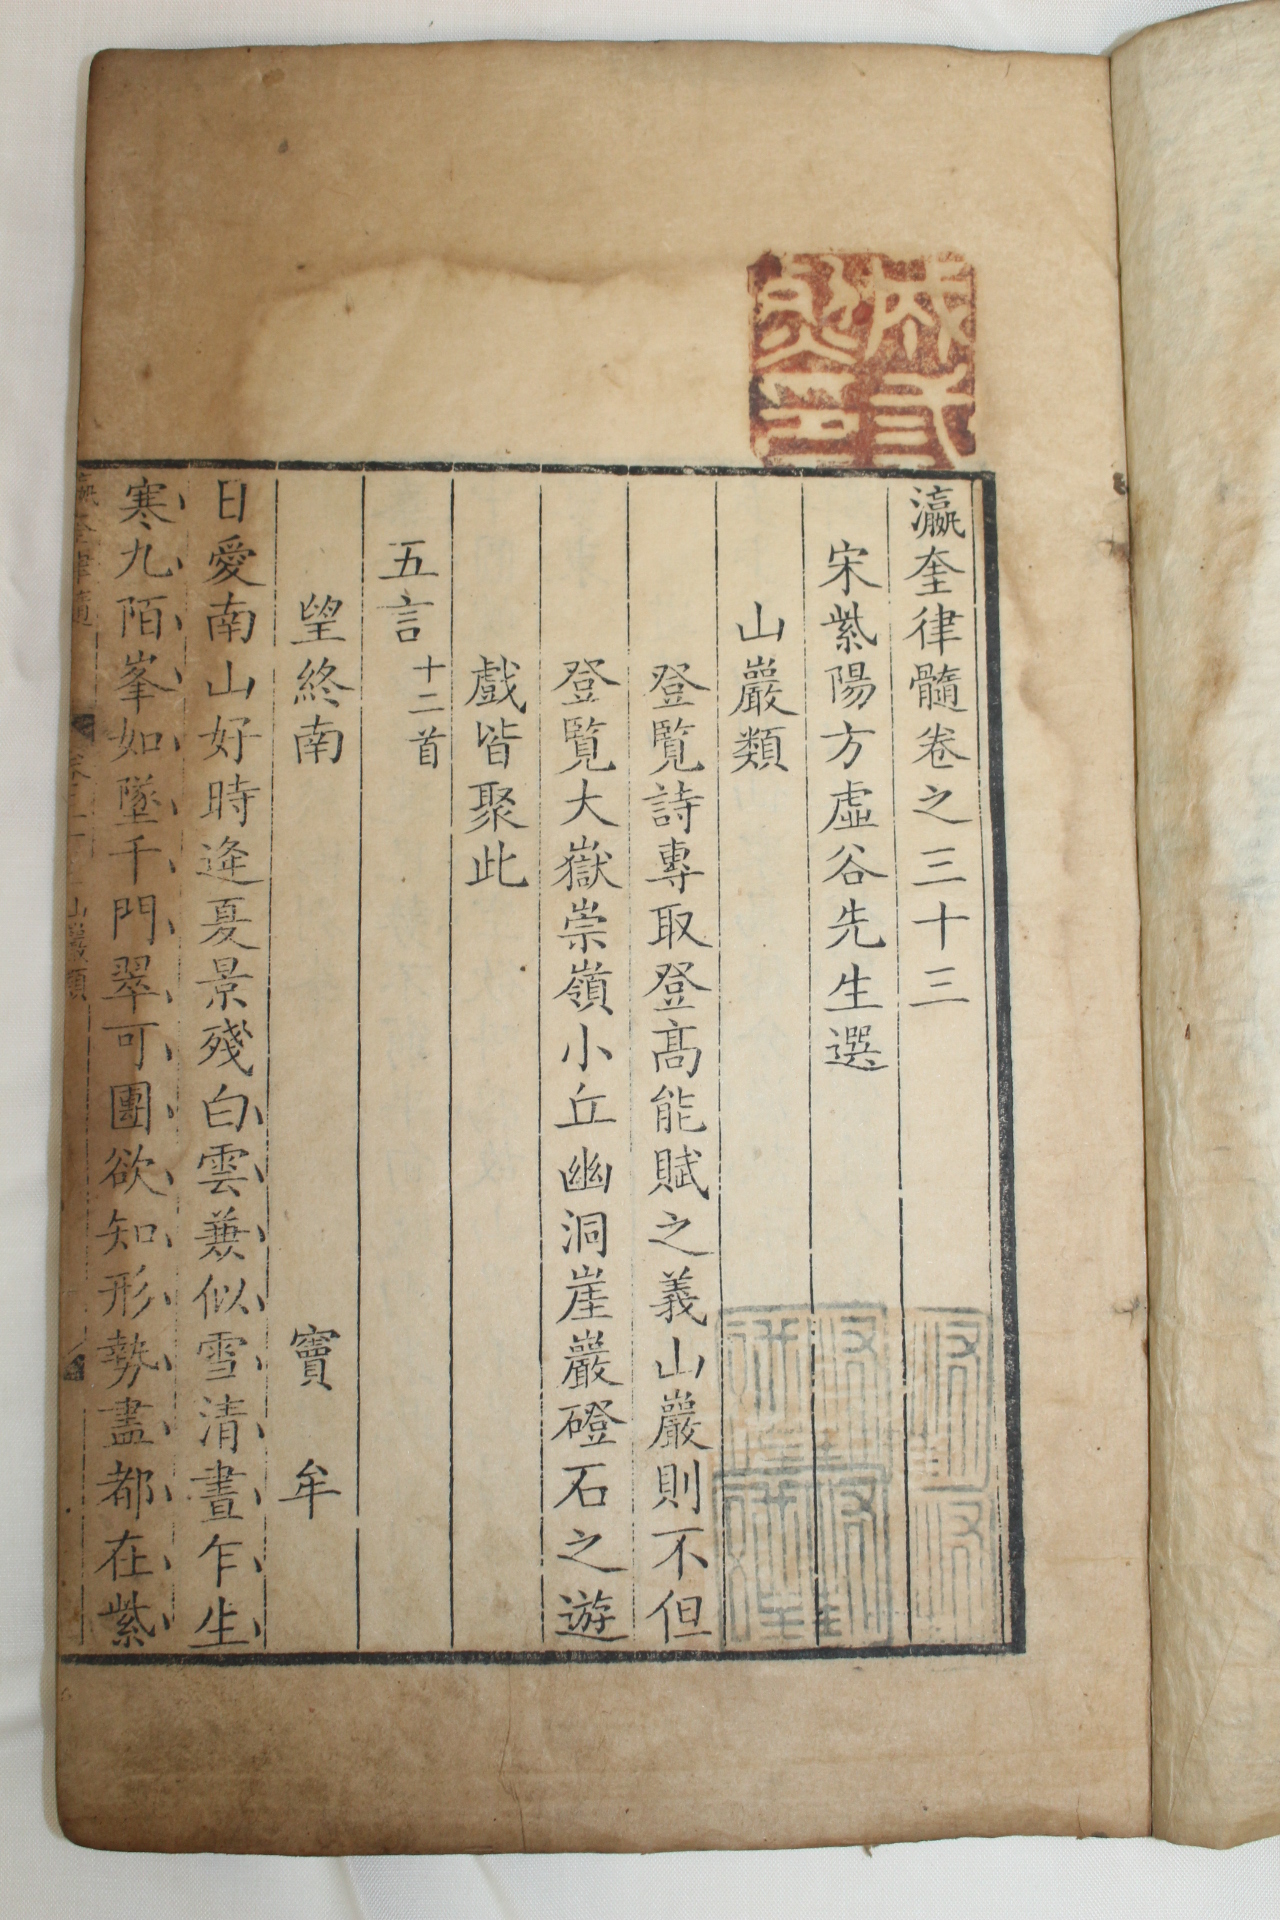 瀛奎律髓卷之三十三
宋紫陽方虛谷先生選
山巖類
登覽詩專取登高能賦之義山巖則不但
登覽大嶽崇嶺小丘幽洞崖巖磴石之遊
戲皆聚此
五言十二首
望終南 竇牟
日愛南山好時逄夏景殘白雲兼似雪清晝乍生
寒九陌峯如墜千門翠可團欲知形勢盡都在紫
瀛奎律髓 山巖類